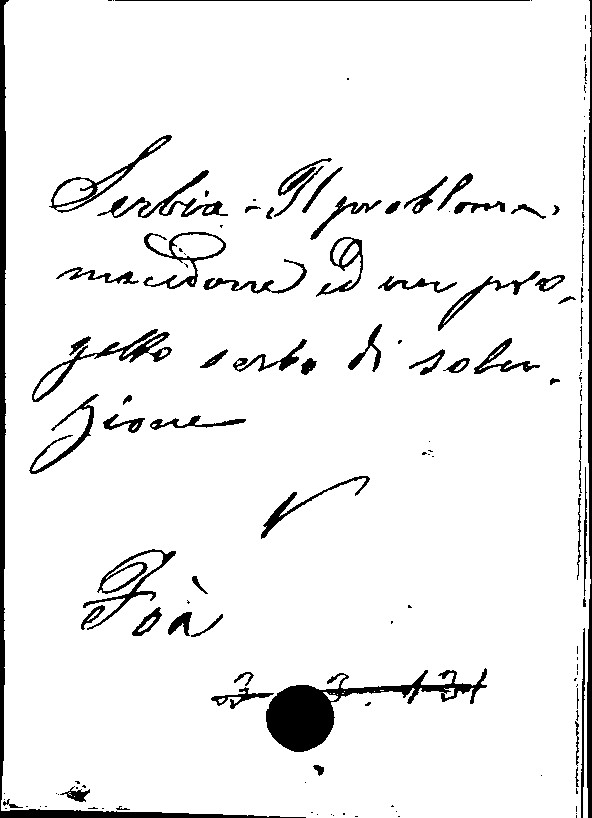 Serbia - Il problema
macedone ed un pro-
getto serbo di solu-
zione
Foà
3 3. 131